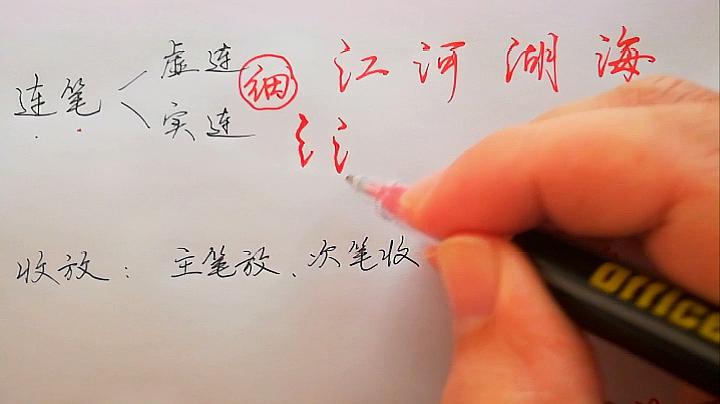 虚连 细 江 河 湖 海
连笔
实连 氵 氵
收放：主笔放、次笔收
office